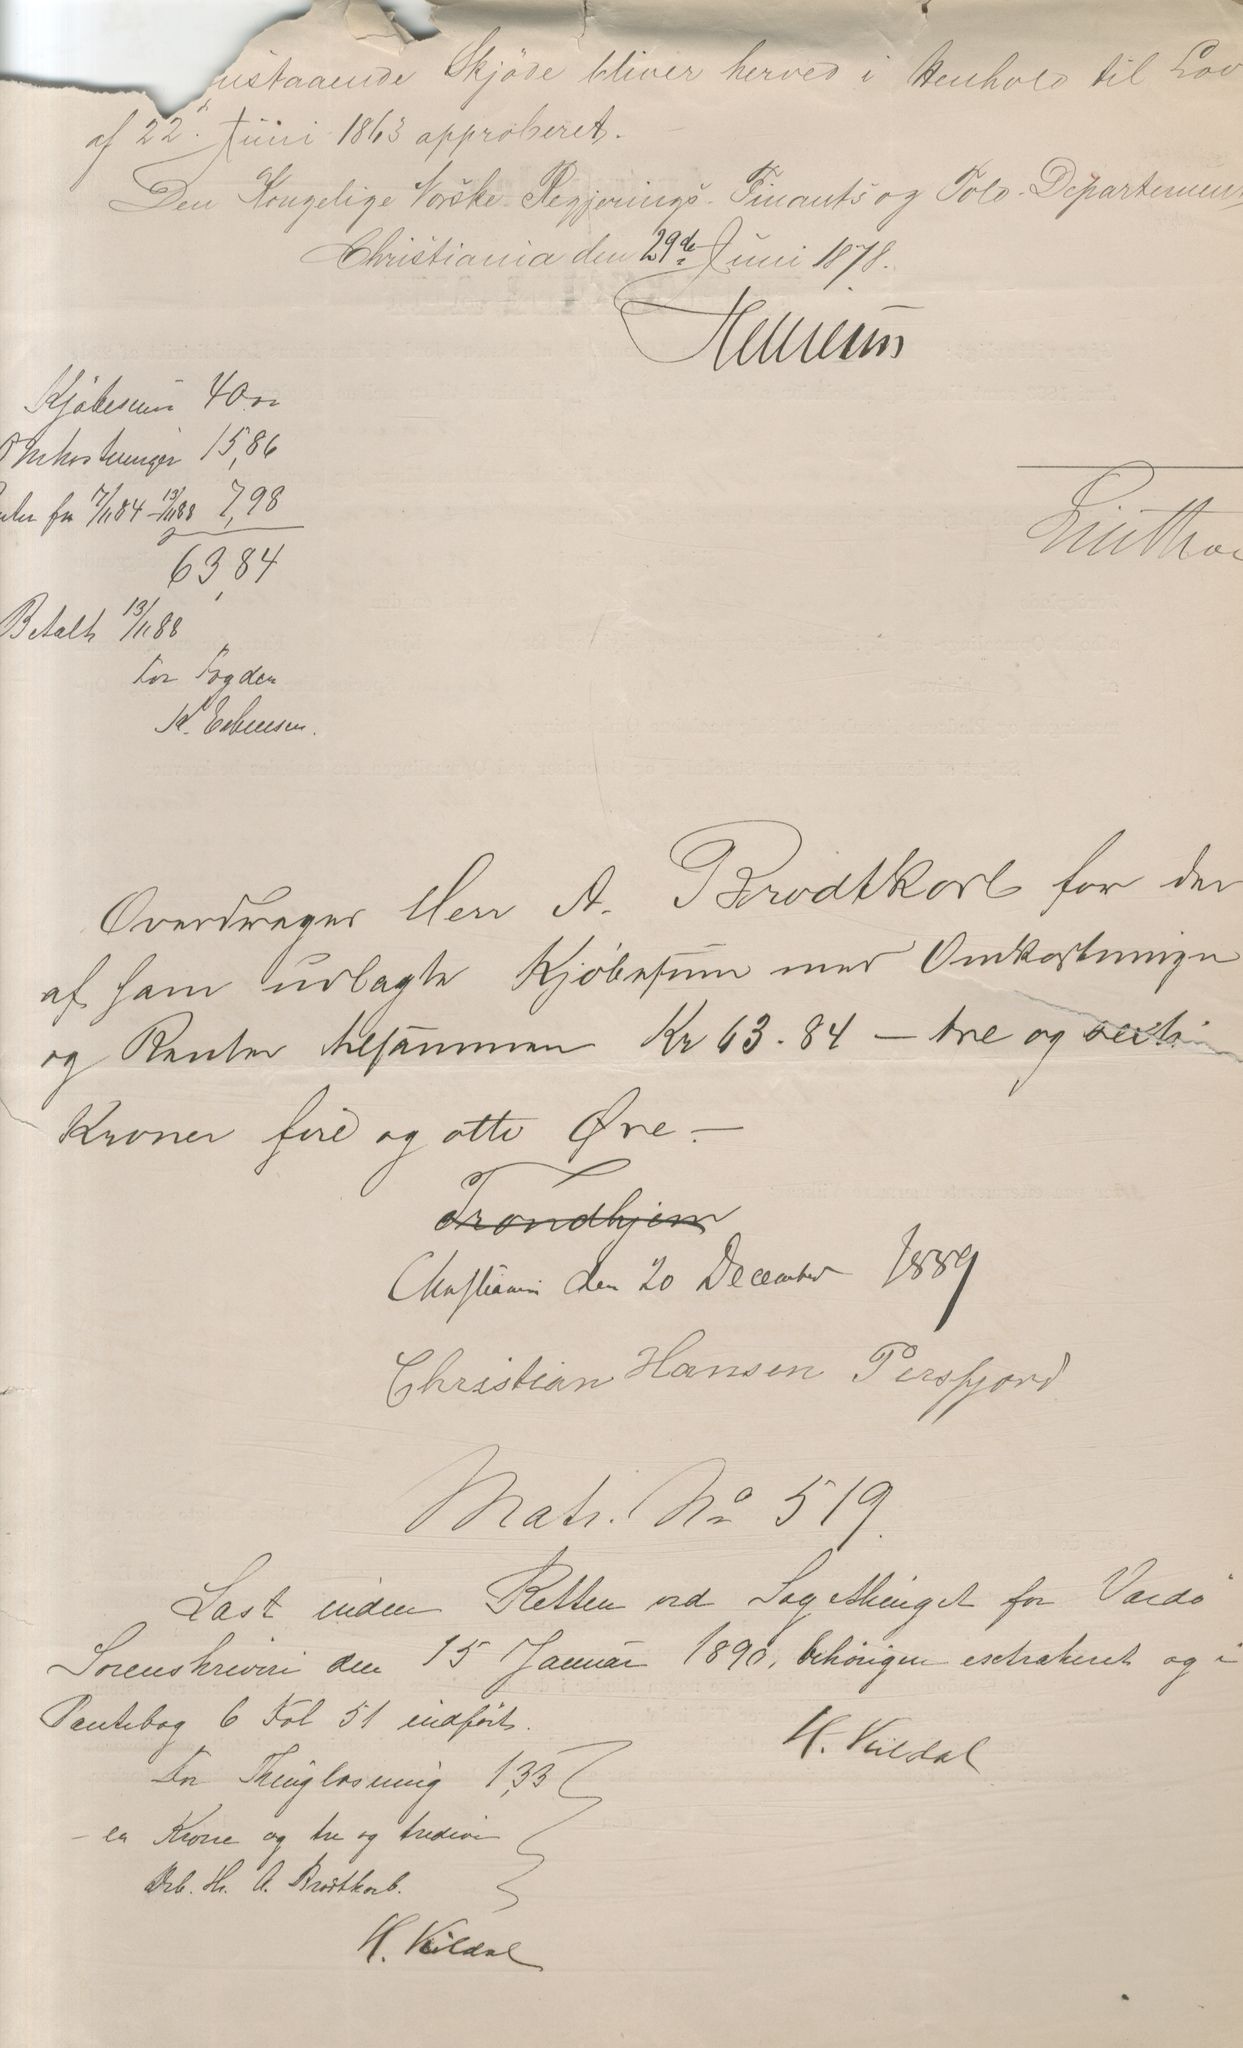 ustaaende Skjøde bliver herved i Henhold til Lov
af 22d. Juni 1863 approberet.
Den Kongelige Norske Regjerings Finants og Told-Departement
Christiania den 29de Juni 1878.
Kjøbesum 40 00
Omkostninger 15,86
fra 7/11 84 - 13/11 88 7,98
63,84
Betalt 13/11 88
For Fogden
K. Esbensen.
Overdrages Herr A. Brodtkorb for den
af ham udlagte Kjøbesum med Omkostninger
og Renter tilsammen Kr 63.84 — tre og sexti
Kroner fire og otti Øre.—
Trondhjem
Christiania den 20 December 1889
Christian Hansen Persfjord
Matr. No 519.
Læst inden Retten ved Sagethinget for Vardø
Sorenskriveri den 15 Januar 1890, behørigen extraheret og i
Pantebog 6 Fol 51 indført.
H. Kildal
For Thinglæsning 1,33
- en Krone og tre og tredive
Drb. Hr. A. Brodtkorb.
H. Kildal